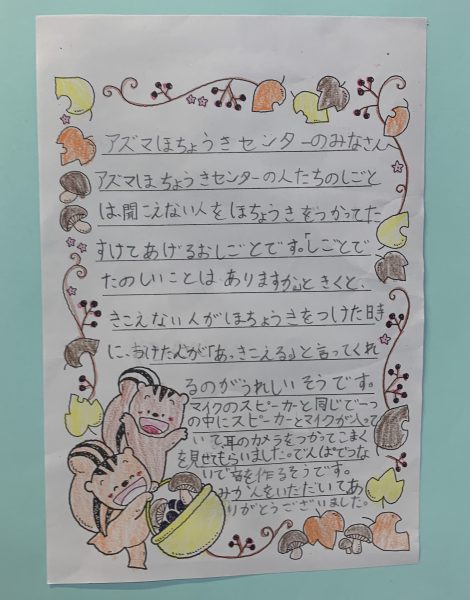 アズマほちょうきセンターのみなさんへ
アズマほちょうきセンターの人たちのしごと
は、聞こえない人をほちょうきをつかってた
すけてあげるおしごとです。「しごとで
たのしいことはありますか」ときくと、
きこえない人がほちょうきをつけた時
に、つけた人が「あっきこえる」と言ってくれ
るのがうれしいそうです。
マイクのスピーカーと同じで一つ
の中にスピーカーとマイクが入って
いて耳のカメラをつかってこまく
を見せてもらいました。でんぱでつな
いで音を作るそうです。
みかんをいただいてあ
りがとうございました。